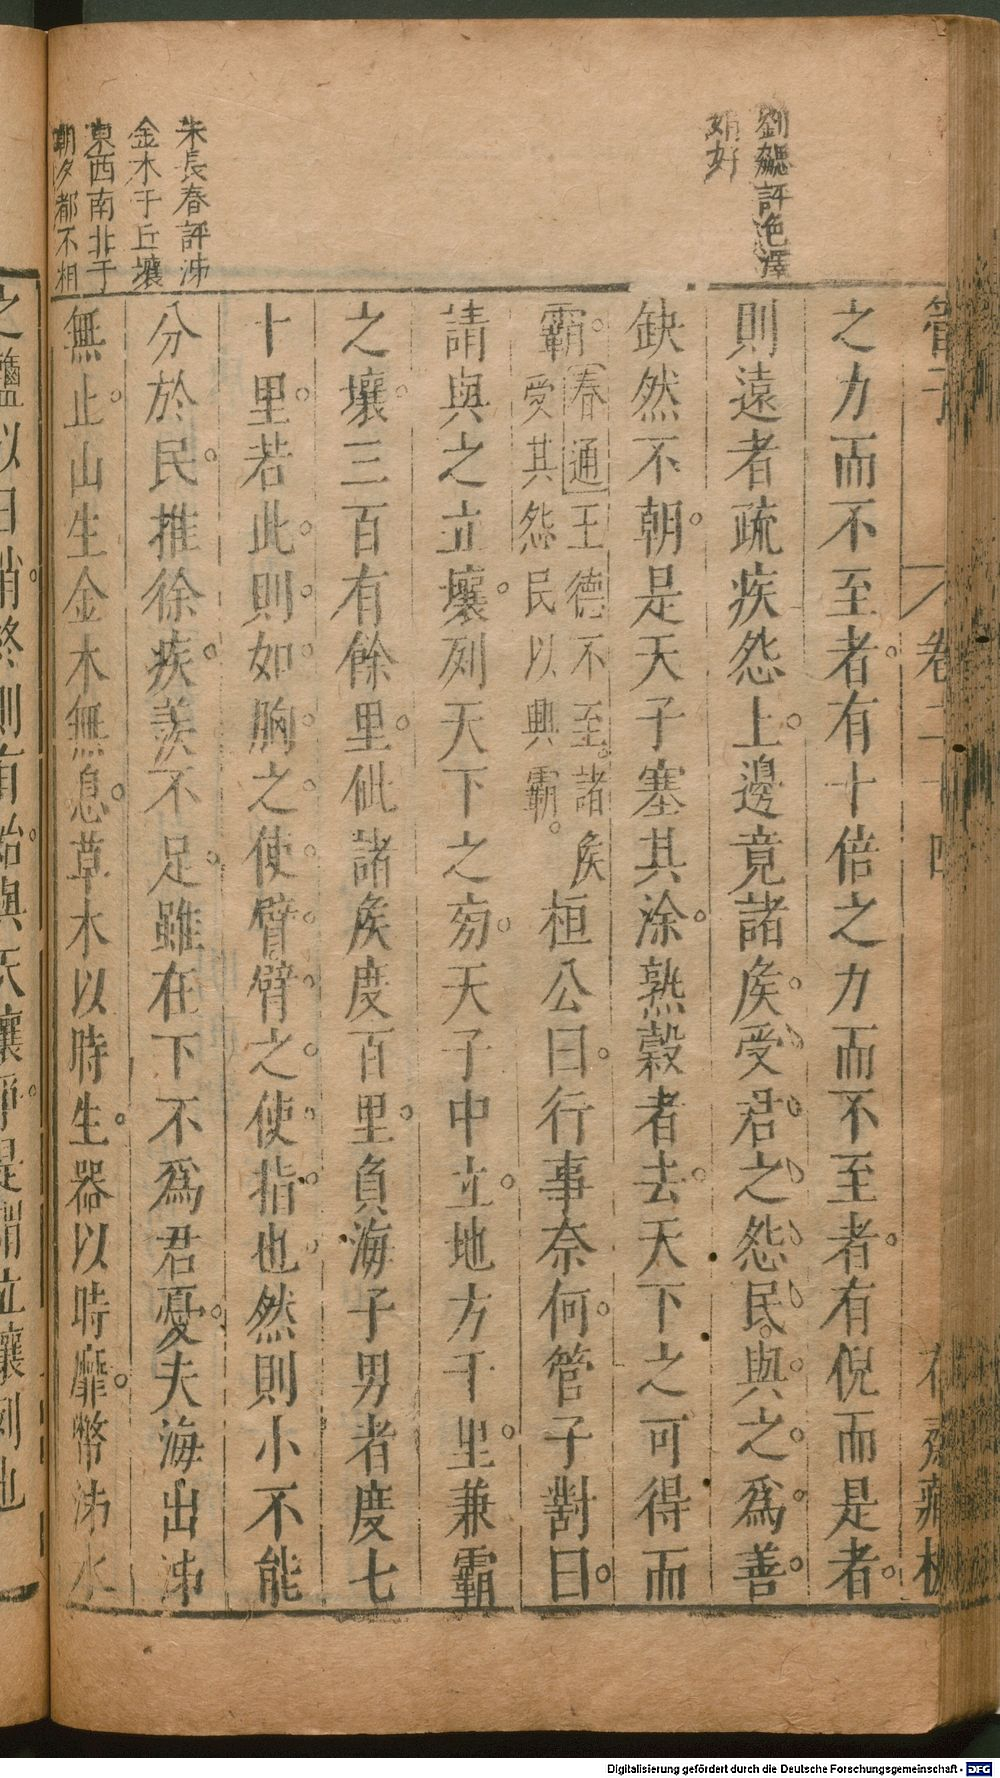 劉勰評色澤
娟好
朱長春評沸
金木于丘壤
東西南北于
朝夕都不相
管子
卷二十四
之力而不至者有十倍之力而不至者有倪而是者
則遠者疏疾怨上邊竟諸矦受君之怨民與之爲善
缺然不朝是天子塞其涂熟穀者去天下之可得而
霸春通王德不至諸矦受其怨民以興霸桓公曰行事奈何管子對曰
請與之立壤列天下之㫄天子中立地方千里兼霸
之壤三百有餘里佌諸矦度百里負海子男者度七
十里若此則如胸之使臂臂之使指也然則小不能
分於民推徐疾羨不足雖在下不爲君憂夫海出沸
無止山生金木無息草木以時生器以時靡幣沸水
之鹽以日消終則有始與天壤爭是謂立壤列也
Digitalisierung gefördert durch die Deutsche Forschungsgemeinschaft - DFG